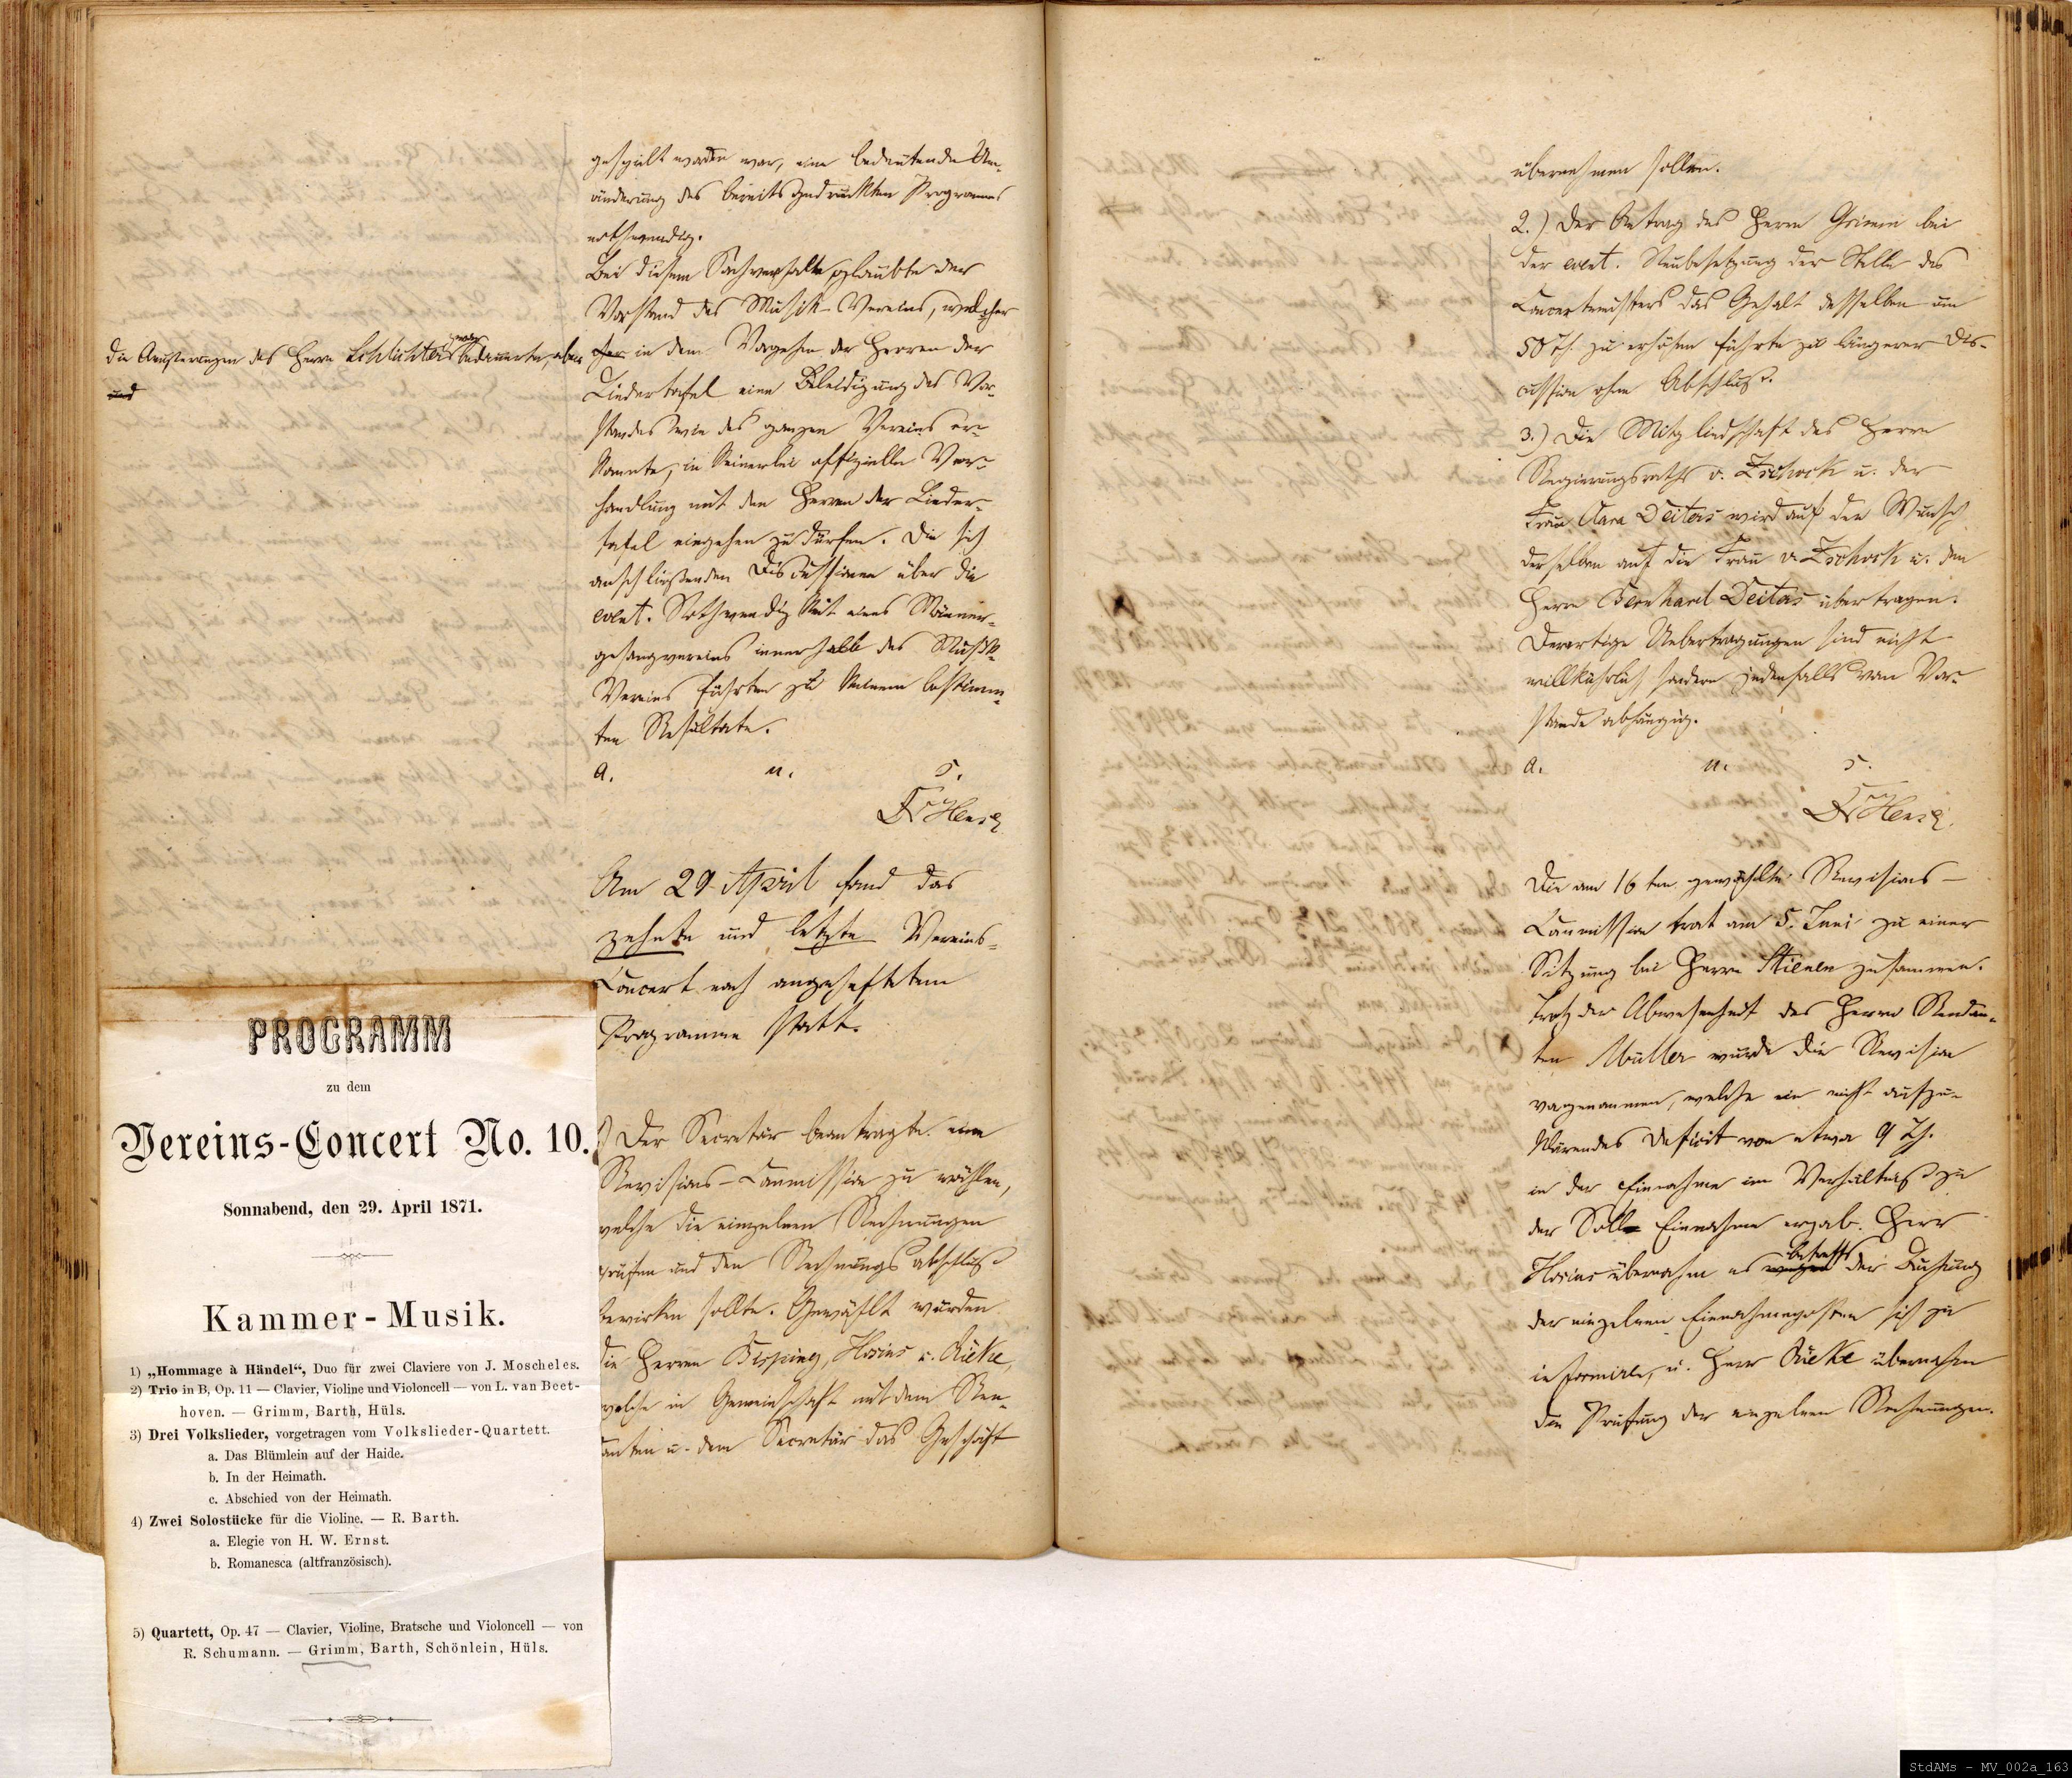 gespielt worden war, eine bedeutende Um-
änderung des bereits gedruckten Programmes
nothwendig.
Bei diesem Sachverhalte glaubte der
Vorstand des Musik-Vereins, welcher
die Aeusserungen des Herrn Schlichter zwar bedauerte, aber
und
in dem Vorgehen der Herren der
Liedertafel eine Beleidigung des Vor-
standes wie des ganzen Vereins er-
kannte, in keinerlei offizielle Ver-
handlung mit den Herren der Lieder-
tafel eingehen zu dürfen. Die sich
anschließenden Discussionen über die
event. Nothwendigkeit eines Männer-
gesangvereins innerhalb des Musik-
Vereins führten zu keinem bestimm-
ten Resultate.
a. u. s.
Am 29 April fand das
zehnte und letzte Vereins-
Concert nach angeheftetem
Programme statt.
Der Secretär beantragte eine
Revisions-Commission zu wählen,
welche die einzelnen Rechnungen
prüfen und den Rechnungsabschluß
bewirken sollte. Gewählt wurden
die Herren Bisping, Hosius u. Rieke,
welche in Gemeinschaft mit dem Ren-
danten u. dem Secretär das Geschäft
PROGRAMM
zu dem
Vereins-Concert No. 10.
Sonnabend, den 29. April 1871.
Kammer-Musik.
1) „Hommage à Händel“, Duo für zwei Claviere von J. Moscheles.
2) Trio in B, Op. 11 — Clavier, Violine und Violoncell — von L. van Beet-
hoven. — Grimm, Barth, Hüls.
3) Drei Volkslieder, vorgetragen vom Volkslieder-Quartett.
a. Das Blümlein auf der Haide.
b. In der Heimath.
c. Abschied von der Heimath.
4) Zwei Solostücke für die Violine. — R. Barth.
a. Elegie von H. W. Ernst.
b. Romanesca (altfranzösisch).
5) Quartett, Op. 47 — Clavier, Violine, Bratsche und Violoncell — von
R. Schumann. — Grimm, Barth, Schönlein, Hüls.
übernehmen sollen.
2.) Der Antrag des Herrn Grimm bei
der event. Neubesetzung der Stelle des
Concertmeisters das Gehalt desselben um
50 Th. zu erhöhen führte zu längerer Dis-
cussion ohne Abschluß.
3.) Die Mitgliedschaft des Herrn
Regierungsraths v. Zschock u. der
Frau Clara Deiters wird auf den Wunsch
derselben auf die Frau v. Zschock u. den
Herrn Bernhard Deiters übertragen.
Derartige Uebertragungen sind nicht
willkührlich sondern jedenfalls vom Vor-
stande abhängig.
a. u. s.
Die am 16ten gewählte Revisions-
Commission trat am 5. Juni zu einer
Sitzung bei Herrn Stienen zusammen.
Trotz der Abwesenheit des Herrn Rendan-
ten Müller wurde die Revision
vorgenommen, welche ein nicht aufzu-
klärendes Deficit von etwa 9 Th.
in der Einnahme im Verhältniß zu
der Soll-Einnahme ergab. Herr
Hosius übernahm es wegen betreffs der Buchung
der einzelnen Einnahmeposten sich zu
informiren, u. Herr Rieke übernahm
die Prüfung der einzelnen Rechnungen.
StdAMs - MV_002a_163